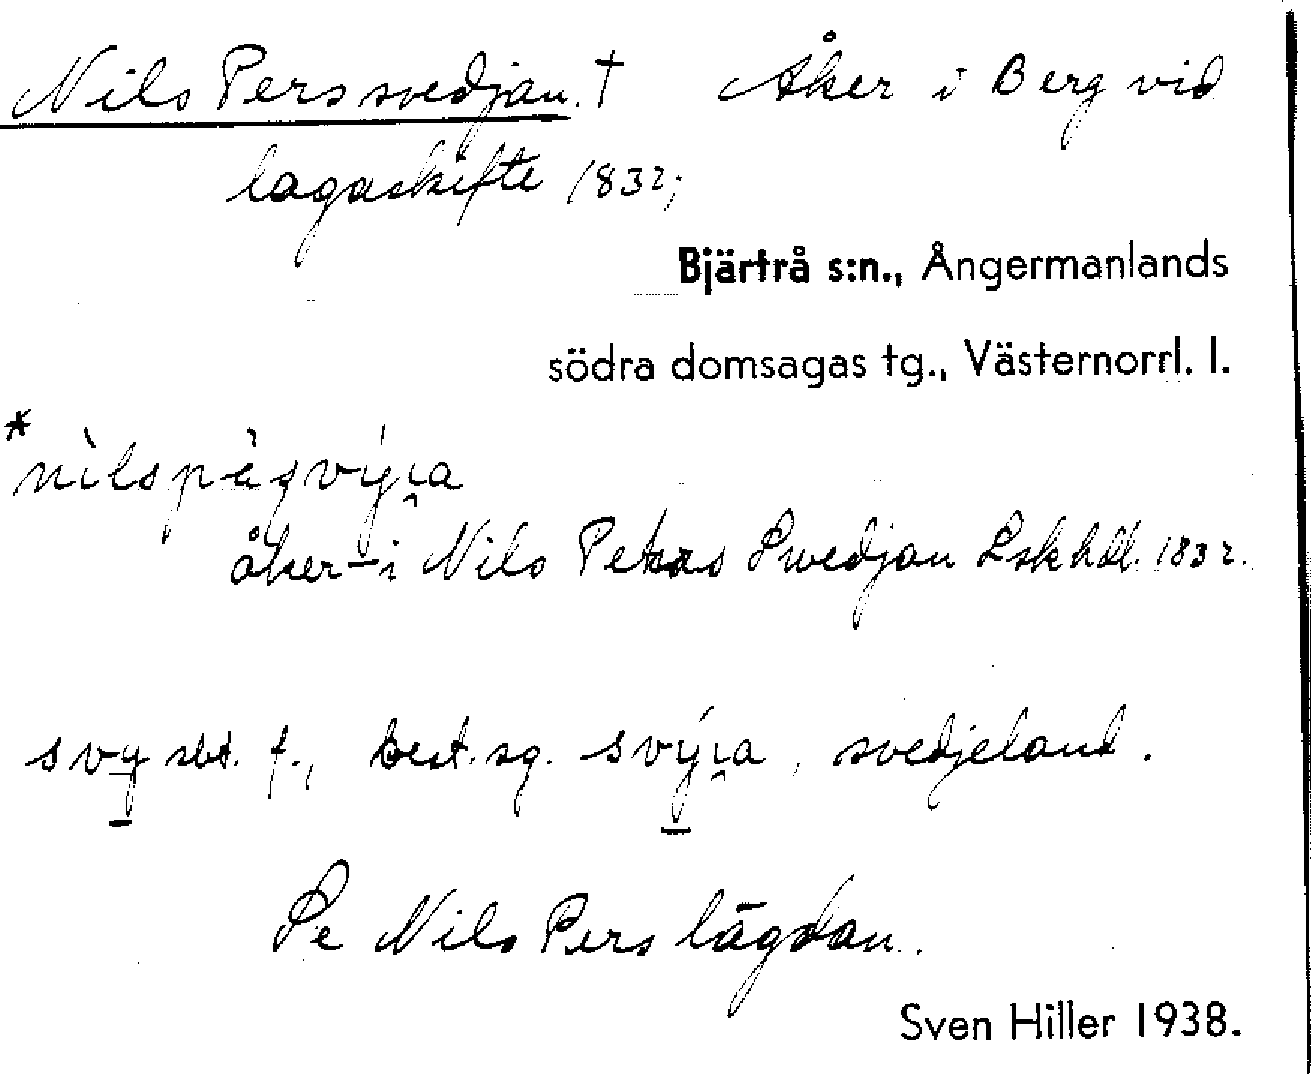 Nils Perssvedjan. † Åker i Berg vid
lagaskifte 1832;
Bjärtrå s:n., Ångermanlands
södra domsagas tg., Västernorrl. l.
åker i Nils Pehrs Swedjan Lskhdl. 1832.
svy sbt. f., best. sg. svýı̯a, svedjeland.
Se Nils Perslägdan.
Sven Hiller 1938.